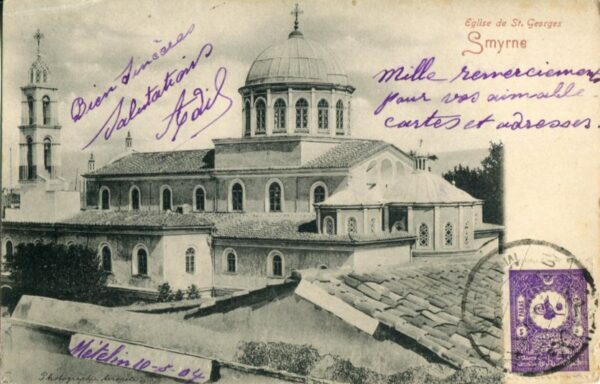 Eglise de St. Georges
Smyrne
Bien sincères
salutations
Adil
Mille remerciements
pour vos aimable
cartes et adresses.
5
5
Mételin 10-5-04
Photographie